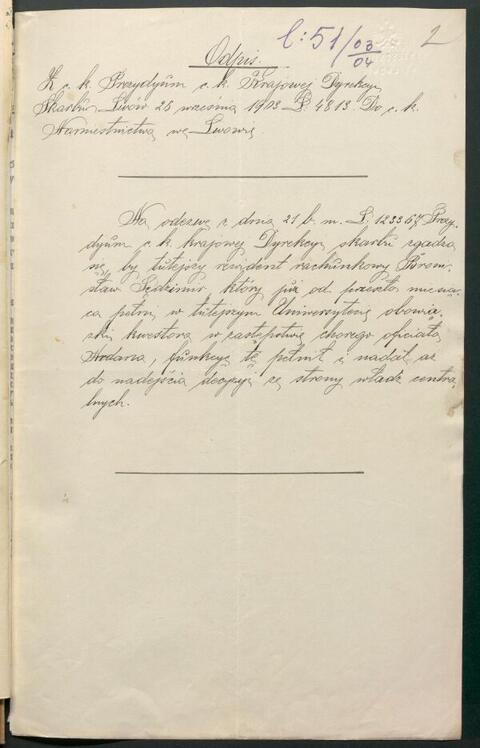 l: 51/03/04
2
Odpis.
Z c. k. Prezydyum c. k. Krajowej Dyrekcyi
Skarbu. Lwów 25 września 1903 L: 4813. Do c. k.
Namiestnictwa we Lwowie
Na odezwę z dnia 21 b. m. L: 123367 Prezy-
dyum c. k. Krajowej Dyrekcyi skarbu zgadza
się, by tutejszy rezydent rachunkowy Broni-
sław Sędzimir, który już od przeszło miesią-
ca pełni w tutejszym Uniwersytecie obowią-
zki kwestora w zastępstwie chorego oficiała
Wodarza, funkcyę tę pełnił i nadal aż
do nadejścia decyzyi ze strony władz centra-
lnych.